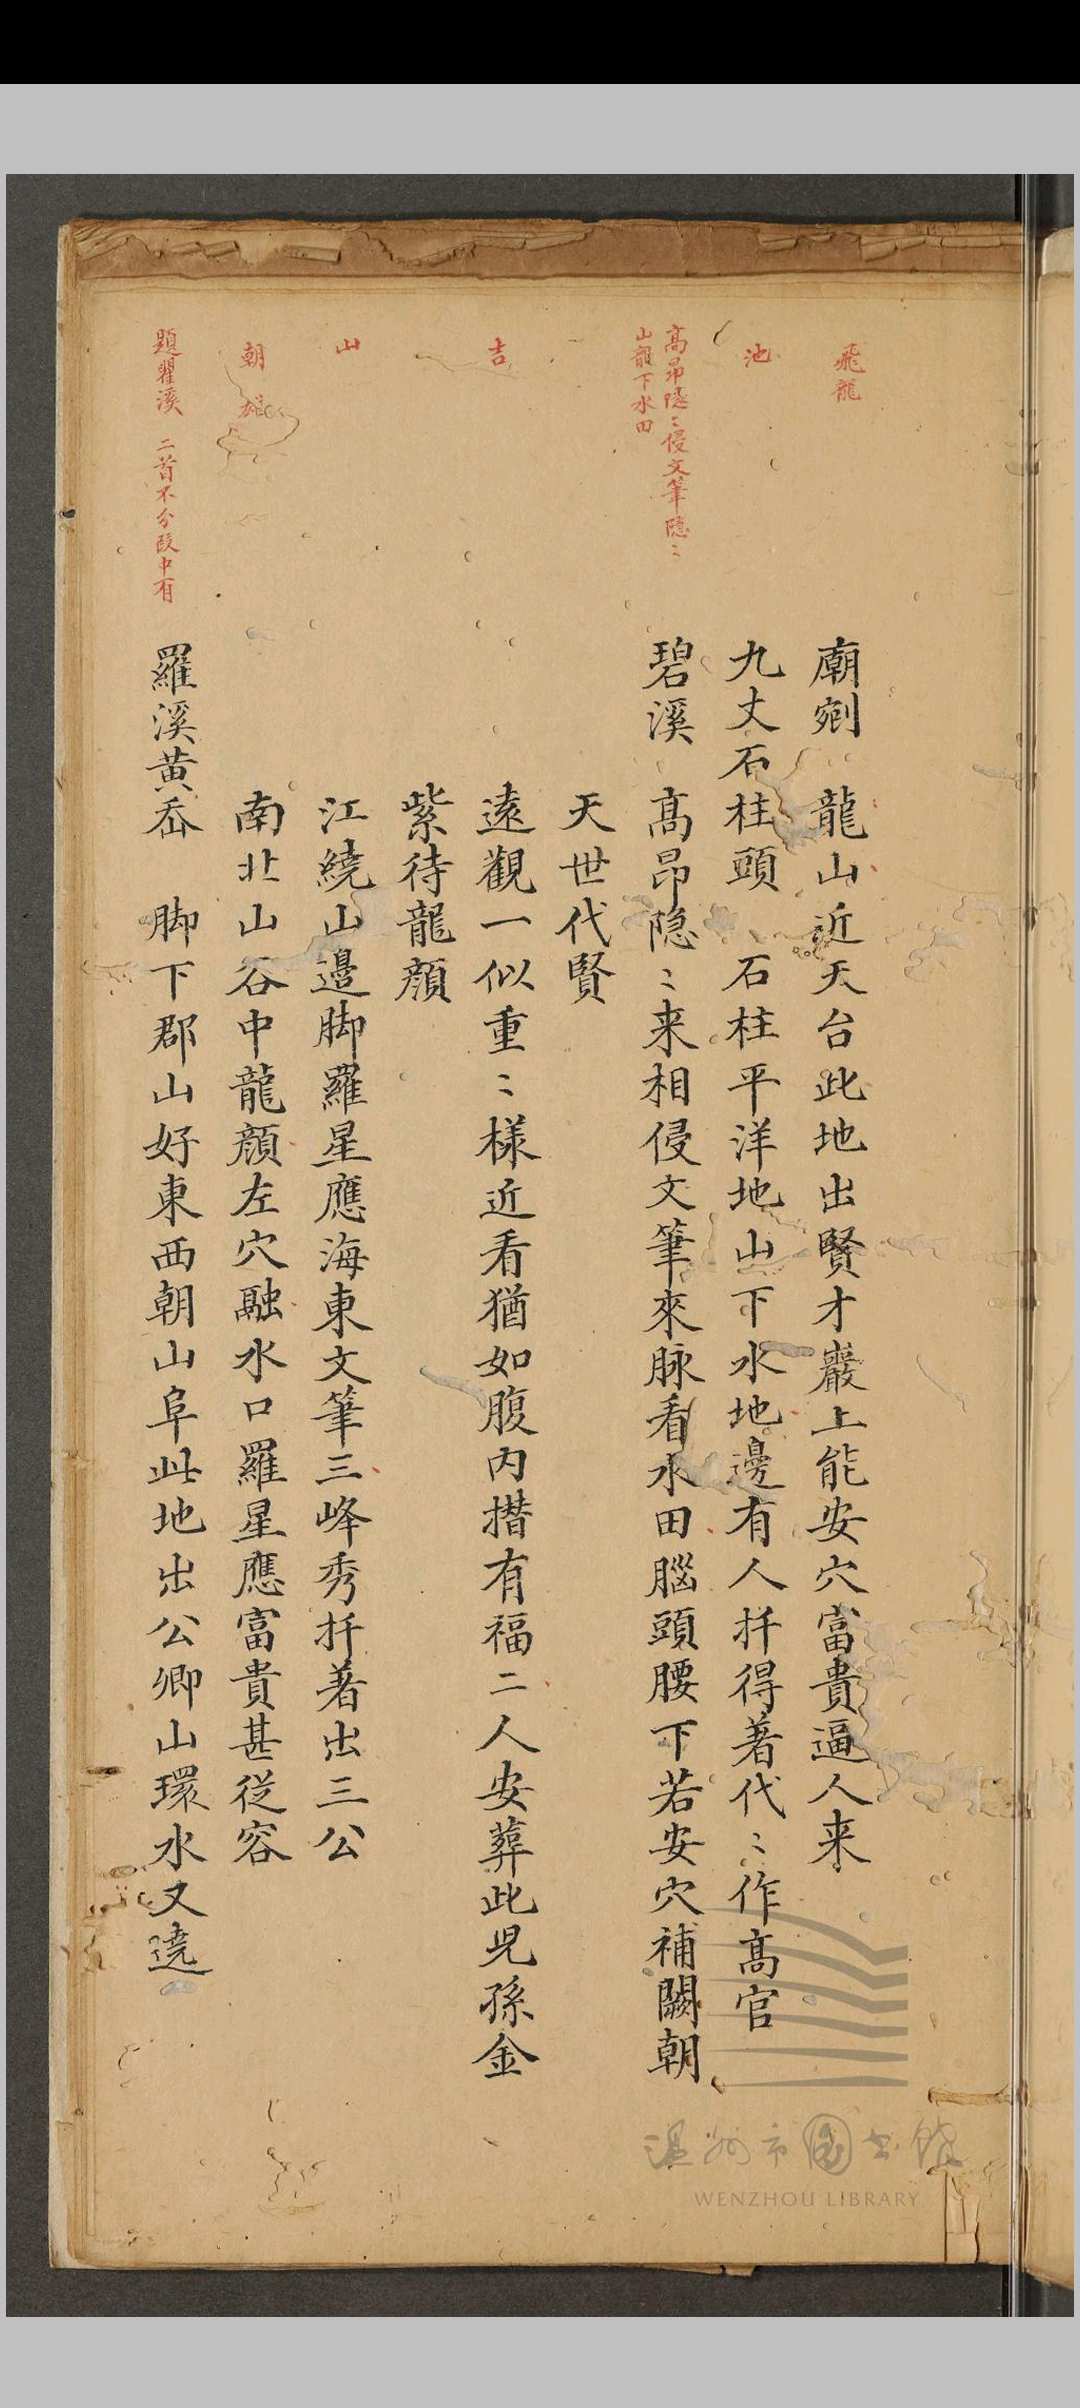 飛龍
池
高昂隱〻侵文筆隱〻
山龍下水田
吉
山
朝
雄
題瞿溪 二首不分段中有
廟剜 龍山近天台此地出賢才巖上能安穴富貴逼人来
九丈石柱頭 石柱平洋地山下水地邊有人扦得著代〻作高官
碧溪 高昂隐〻来相侵文筆來脉看水田腦頭腰下若安穴補闕朝
天世代賢
遠觀一似重〻樣近看猶如腹内揩有福二人安葬此児孫金
紫待龍顔
江繞山邉脚羅星應海東文筆三峰秀扦著出三公
南北山谷中龍顔左穴融水口羅星應富貴甚従容
羅溪黄岙 脚下郡山好東西朝山阜此地出公卿山環水又遶
温州市图书馆
WENZHOU LIBRARY